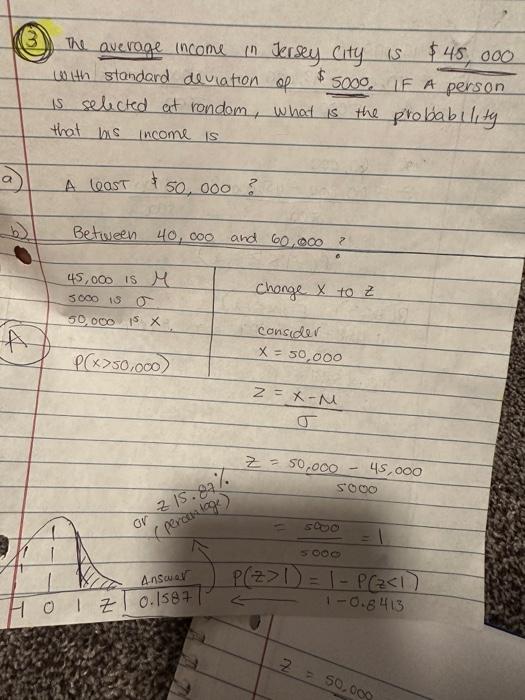 3 The average income in Jersey City is $45,000
with standard deviation of $5000. IF A person
is selected at random, what is the probability
that his income is
a) A least $50,000?
b) Between 40,000 and 60,000?
45,000 is M
5000 is σ
50,000 is x.
A
P(x>50,000)
change x to z
consider
x = 50,000
z = x-M
σ
z = 50,000 - 45,000
5000
= 5000 = 1
5000
P(z>1) = 1 - P(z<1)
1-0.8413
or 15.87%
(percentage)
Answer
0.1587
-1 0 1 z
z = 50,000